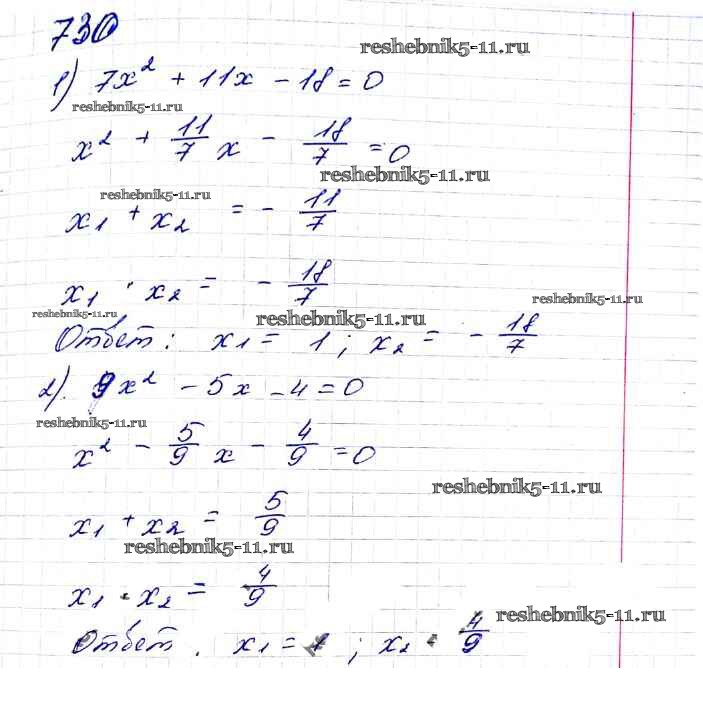 730
reshebnik5-11.ru
1) 7x² + 11x - 18 = 0
reshebnik5-11.ru
x² + 11/7 x - 18/7 = 0
reshebnik5-11.ru
reshebnik5-11.ru
x₁ + x₂ = - 11/7
x₁ · x₂ = - 18/7
reshebnik5-11.ru
reshebnik5-11.ru
reshebnik5-11.ru
Ответ: x₁ = 1; x₂ = - 18/7
2). 9x² - 5x - 4 = 0
reshebnik5-11.ru
x² - 5/9 x - 4/9 = 0
reshebnik5-11.ru
x₁ + x₂ = 5/9
reshebnik5-11.ru
x₁ · x₂ = 4/9
reshebnik5-11.ru
Ответ. x₁ = 1; x₂ 4/9